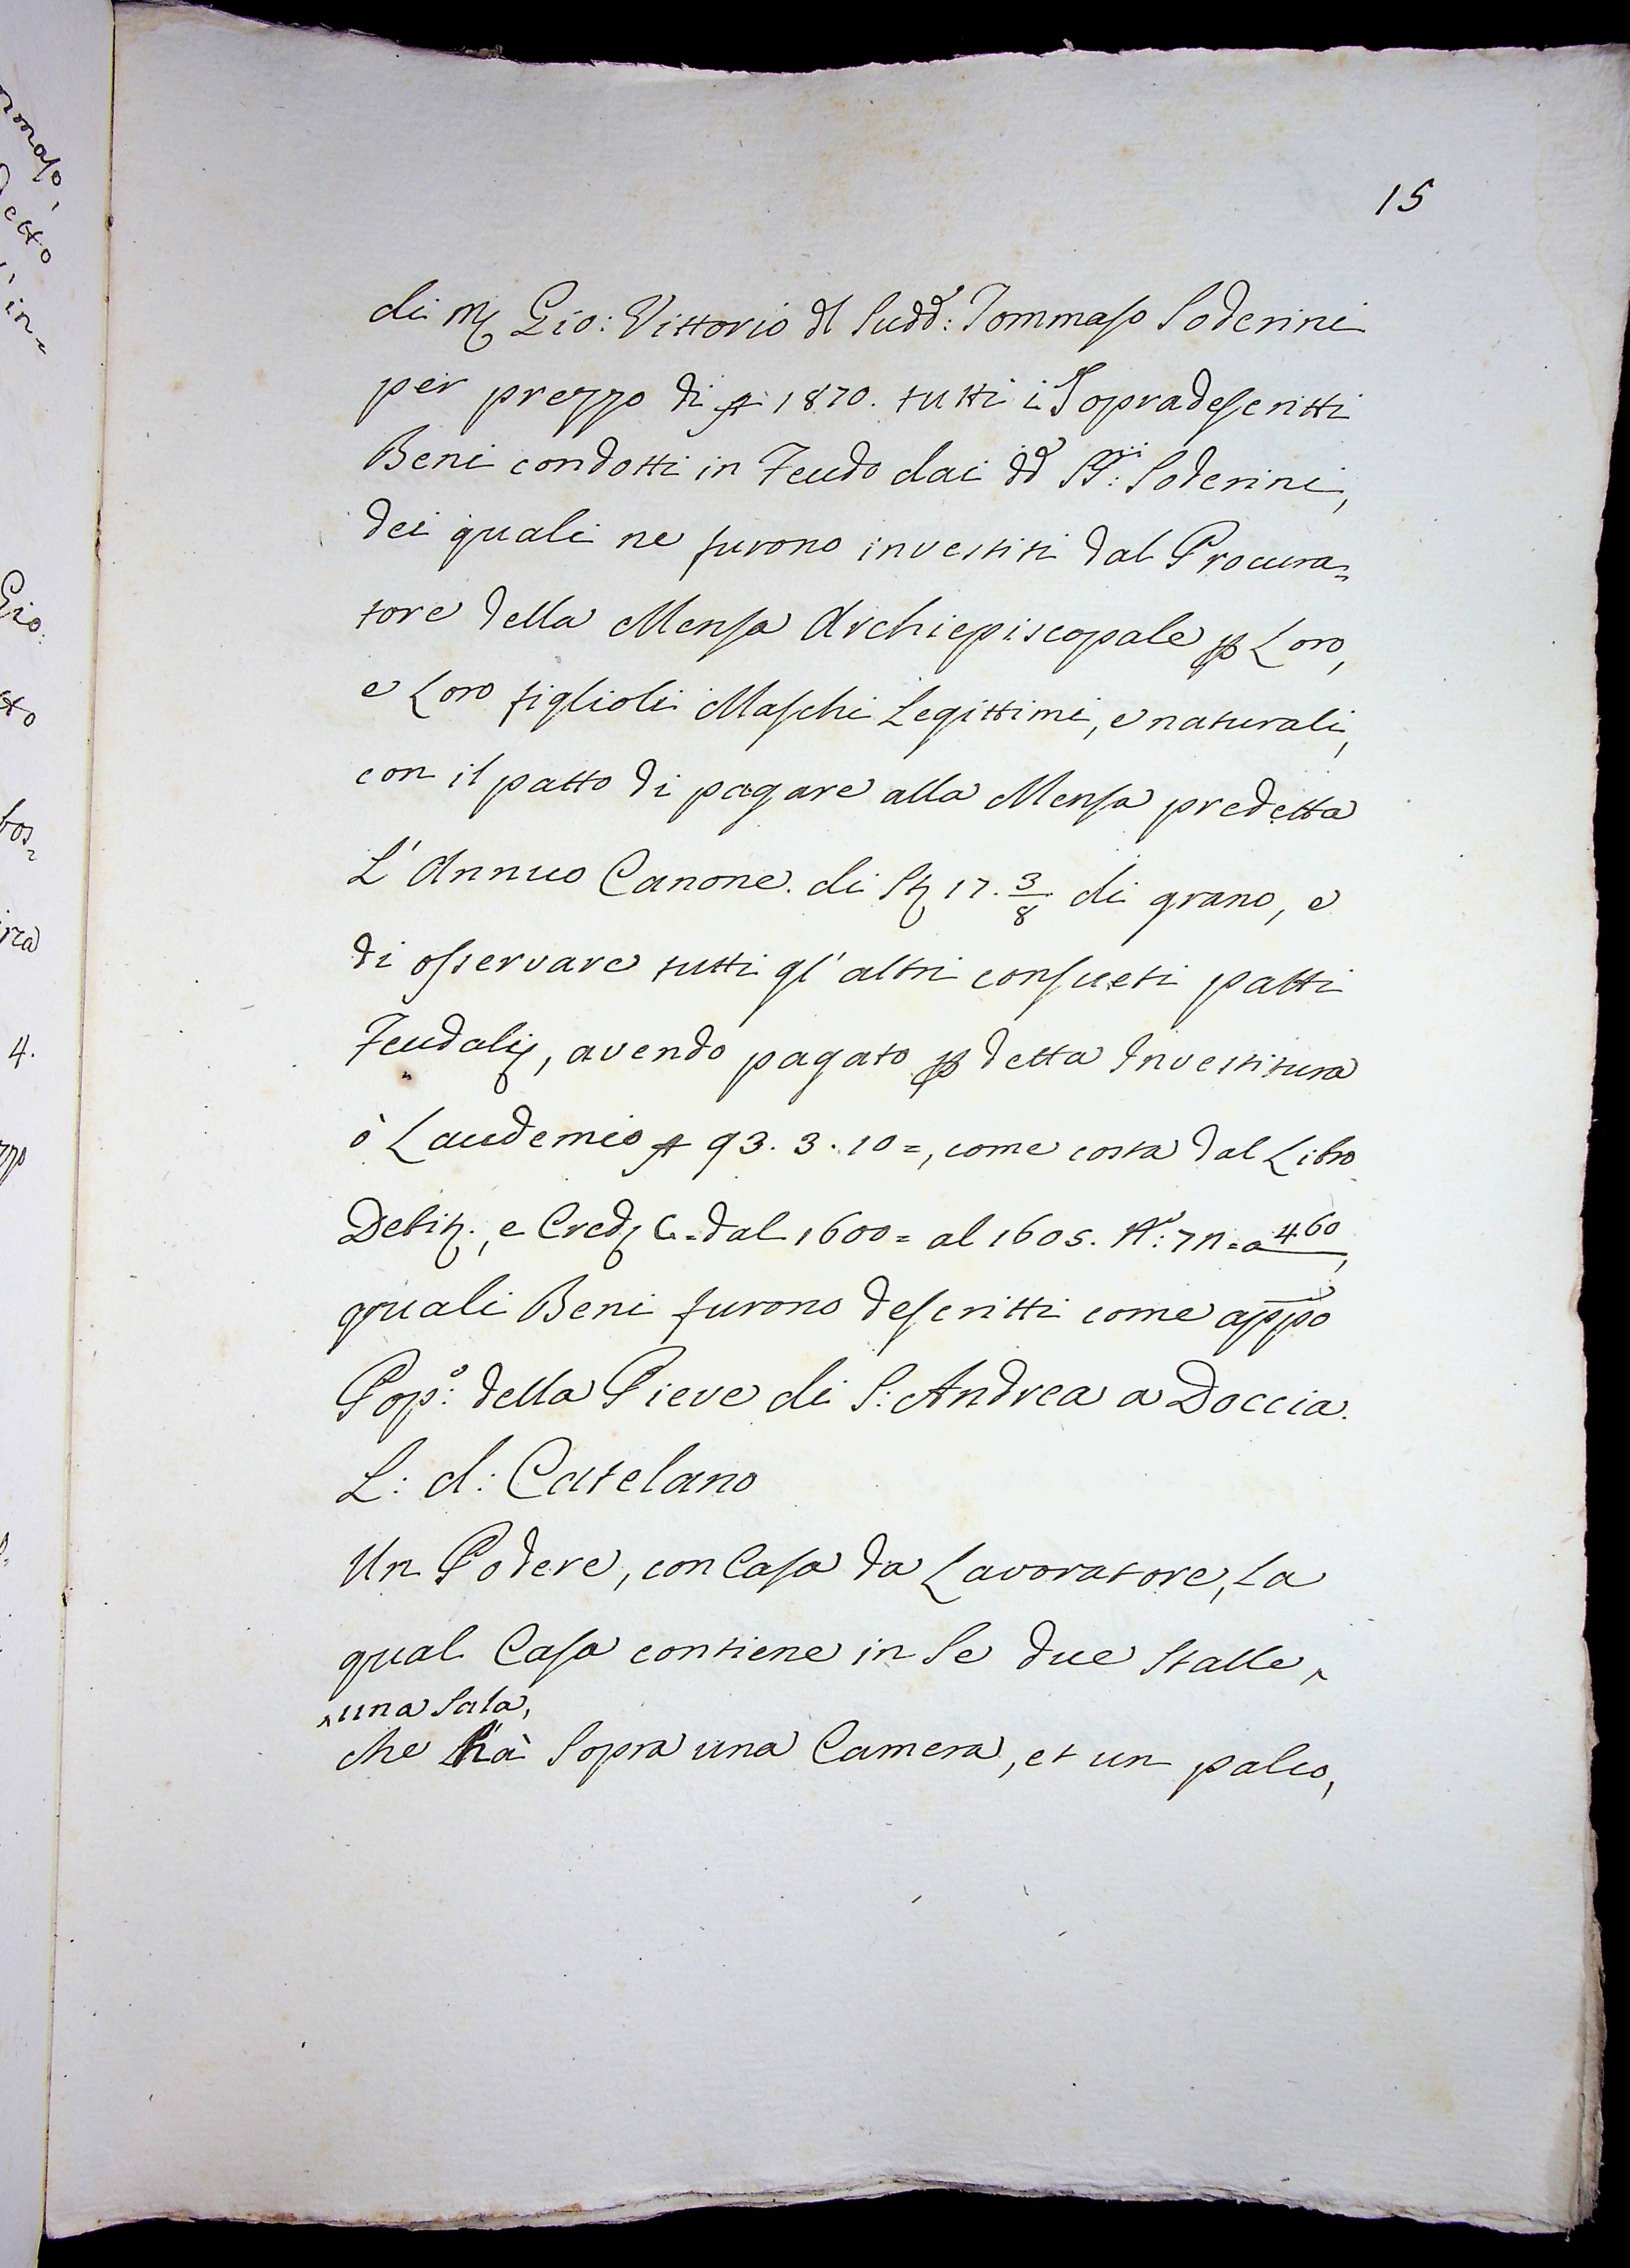 15
di M. Gio: Vittorio dl Sudd.: Tommaso Soderini
per prezzo di 1870. tutti i Sopradescritti
Beni condotti in Feudo dai dd SS.ri: Soderini,
dei quali ne furono investiti dal Procura=
tore della Mensa Archiepiscopale p Loro,
e Loro figlioli Maschi Legittimi, e naturali,
con il patto di pagare alla Mensa predetta
L'Annuo Canone. di St 17. 3/8 di grano, e
di osservare tutti gl'altri consueti patti
Feudalij, avendo pagato p detta Investitura
ò Laudemio 93. 3. 10=, come costa dal Libro
Debit., e Cred. C=dal 1600= al 1605. 7n=a 460,
quali Beni furono descritti come appo
Pop.o: della Pieve di S: Andrea a Doccia.
L: d: Catelano
Un Podere, con Casa da Lavoratore, La
qual Casa contiene in Se due Stalle,
una Sala,
che hà Sopra una Camera, et un palco,
maso,
detto
in=
Gio:
tto
bos=
4.